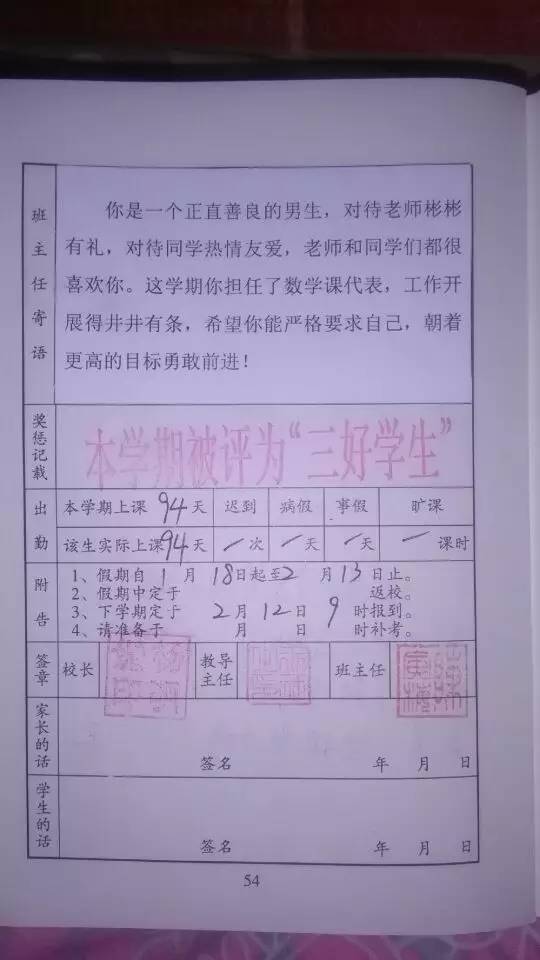 班主任寄语
你是一个正直善良的男生，对待老师彬彬
有礼，对待同学热情友爱，老师和同学们都很
喜欢你。这学期你担任了数学课代表，工作开
展得井井有条，希望你能严格要求自己，朝着
更高的目标勇敢前进！
奖惩记载
本学期被评为“三好学生”
出勤
本学期上课94天 迟到 病假 事假 旷课
该生实际上课94天 一次 一天 一天 一课时
附告
1、假期自1月18日起至2月13日止。
2、假期中定于 返校。
3、下学期定于2月12日9时报到。
4、请准备于 月 日 时补考。
签章 校长 教导主任 班主任
家长的话
签名 年 月 日
学生的话
签名 年 月 日
54